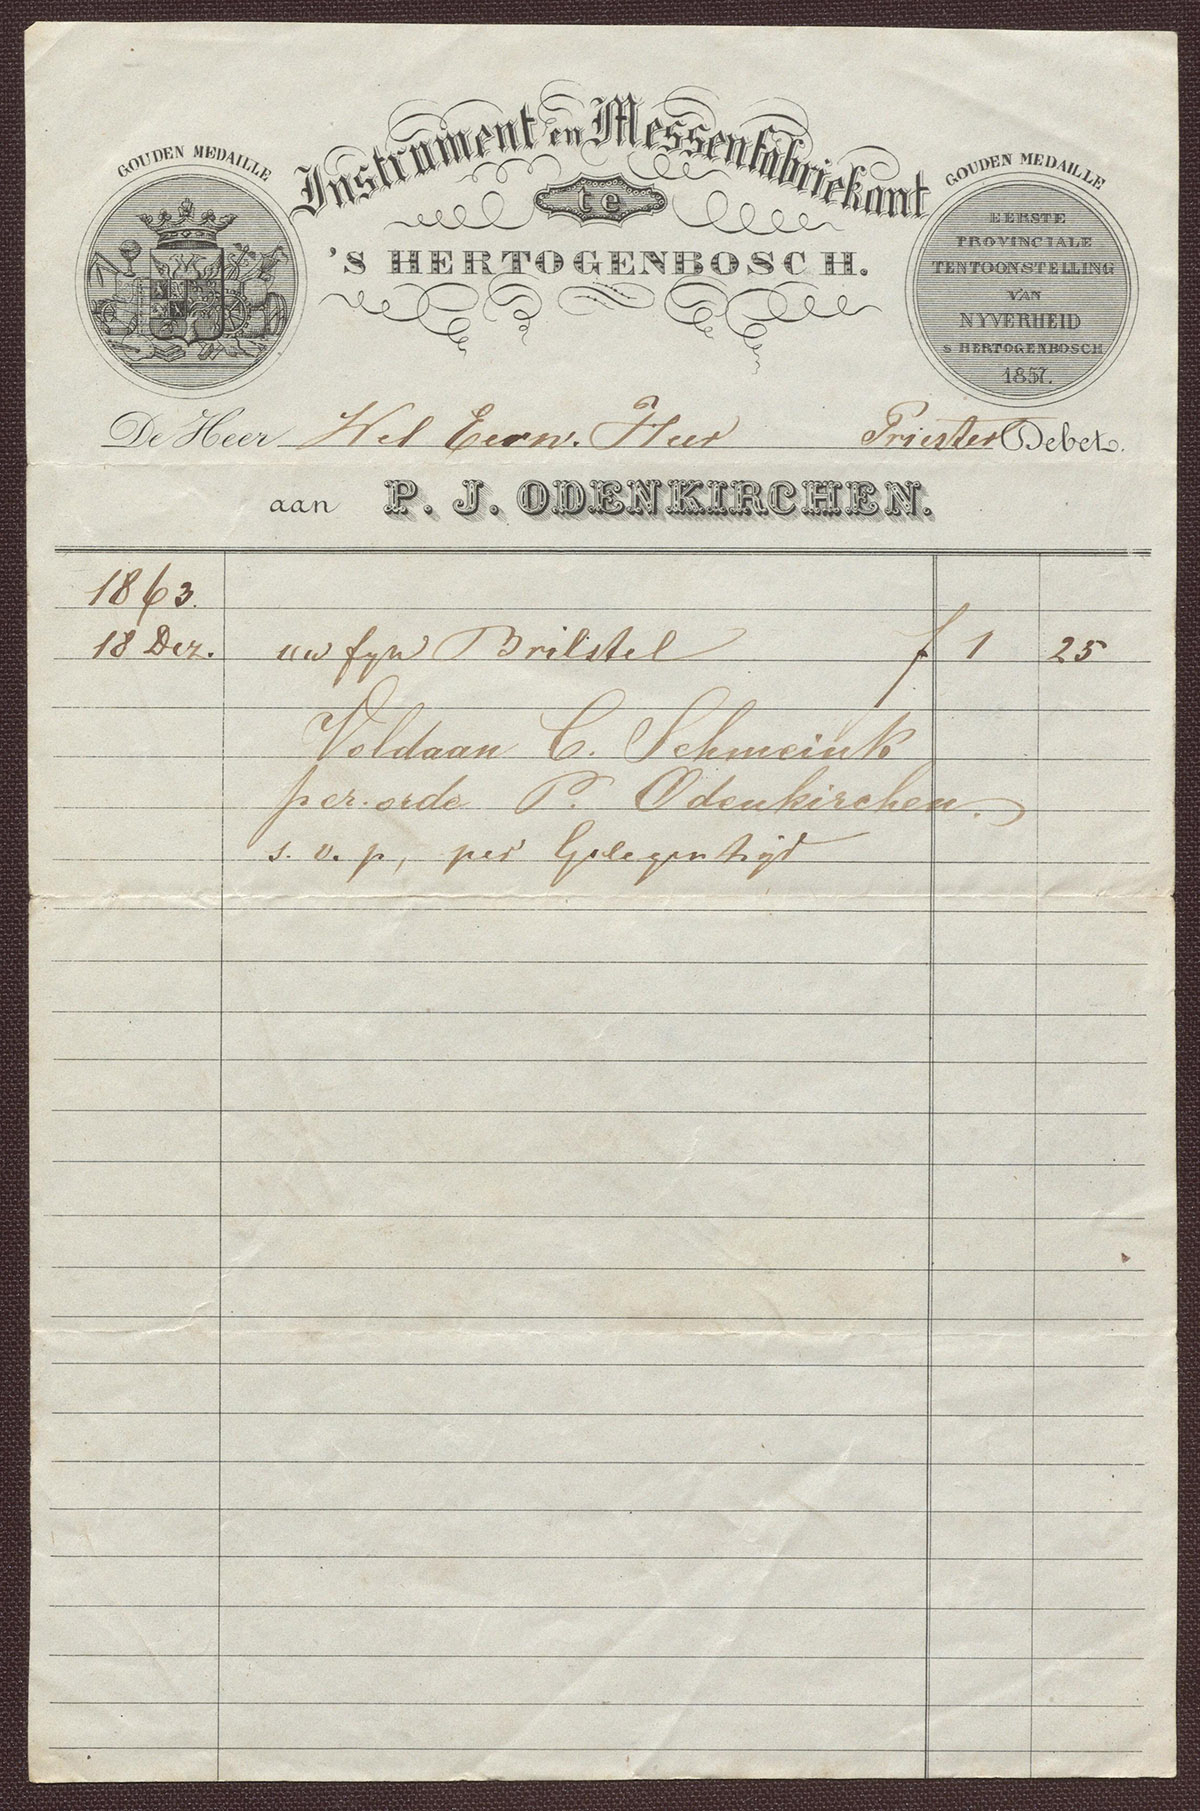 GOUDEN MEDAILLE
Instrument en Messenfabriekant
te
'S HERTOGENBOSCH.
GOUDEN MEDAILLE
EERSTE
PROVINCIALE
TENTOONSTELLING
VAN
NYVERHEID
s HERTOGENBOSCH
1857.
De Heer Wel Eerw. Heer Priester Debet.
aan P. J. ODENKIRCHEN.
1863.
18 Dez. uw fyn Brilstel f 1 25
Voldaan C. Schmeink
per. orde P. Odenkirchen.
s. v. p, per Gelegentijd